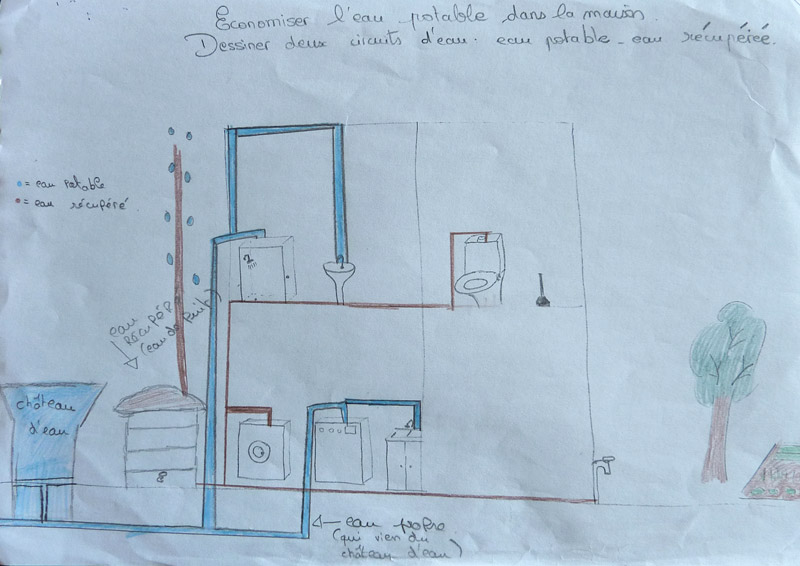 Economiser l'eau potable dans la maison.
Dessiner deux circuits d'eau : eau potable - eau récupérée.
= eau potable
= eau récupéré
eau
récupéré
(eau de puit)
château
d'eau
eau propre
(qui vien du
château d'eau)